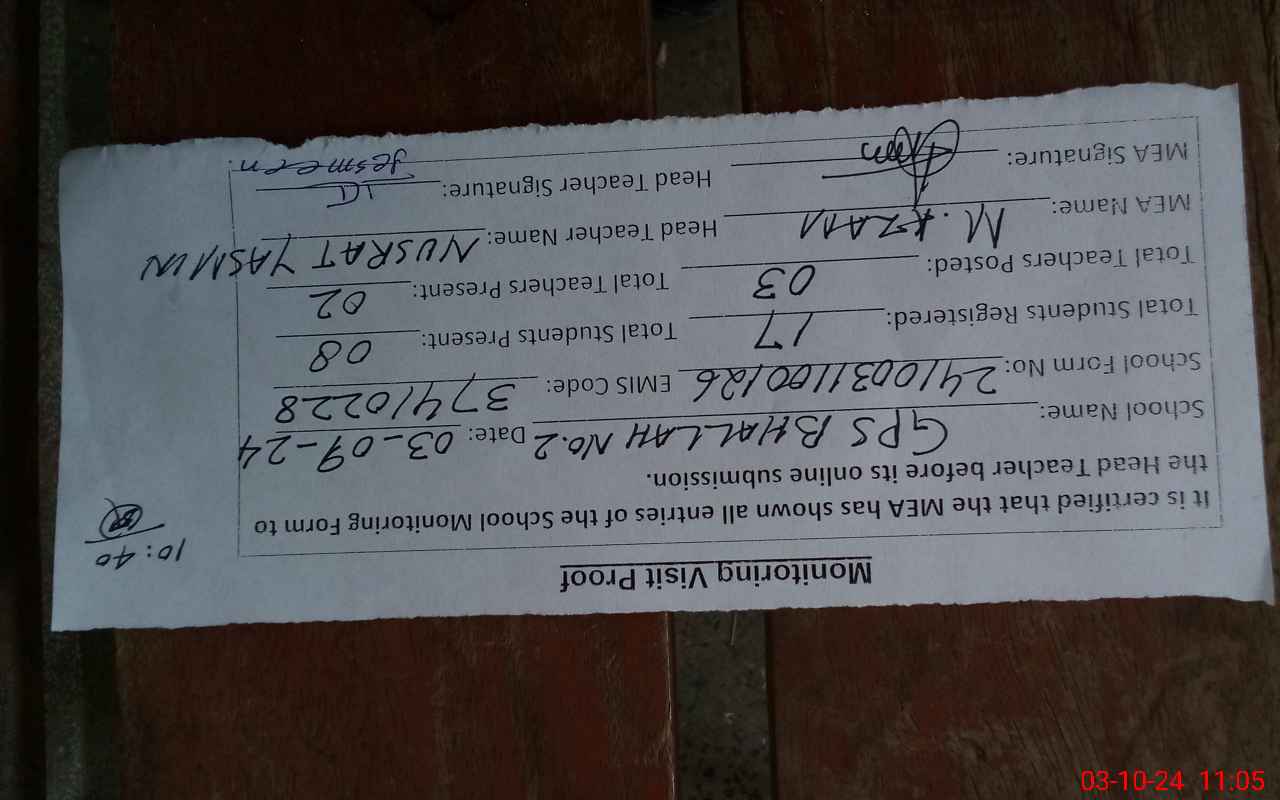 Monitoring Visit Proof
10:40
It is certified that the MEA has shown all entries of the School Monitoring Form to
the Head Teacher before its online submission.
School Name: GPS BHALLAH No.2 Date: 03-09-24
School Form No: 2410031100126 EMIS Code: 37410228
Total Students Registered: 17 Total Students Present: 08
Total Teachers Posted: 03 Total Teachers Present: 02
MEA Name: M. AZAM Head Teacher Name: NUSRAT YASMIN
MEA Signature: Head Teacher Signature:
03-10-24 11:05